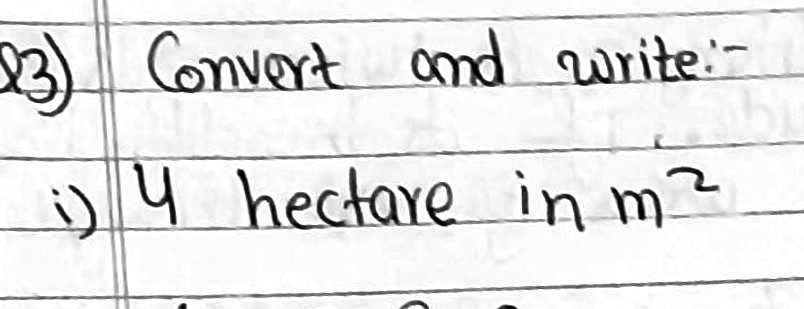 Q3) Convert and write:-
i) 4 hectare in m²